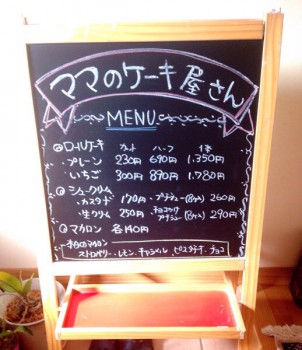 ママのケーキ屋さん
MENU
ロールケーキ カット ハーフ 1本
・プレーン 230円 690円 1,350円
・いちご 300円 890円 1,780円
シュークリーム
・カスタード 170円 ・プチシュー(8ヶ入) 260円
・生クリーム 250円 ・チョコがけプチシュー(8ヶ入) 290円
マカロン 各140円
今日のマカロン
ストロベリー・レモン・キャラメル ピスタチオ・チョコ